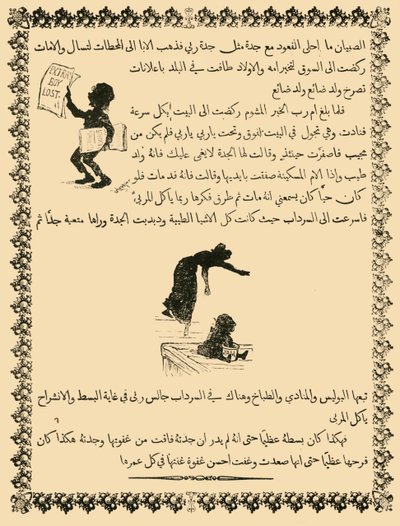 الصبيان ما احلى القعود مع جدة مثل جدة ربي فذهب الابا الى المحطات لتسال والامات
ركضت الى السوق لتخبر امه والاولاد طافت في البلد باعلانات
تصرخ ولد ضائع ولد ضائع
EXTRA
BOY
LOST
فلما بلغ ام رب الخبر المشوم ركضت الى البيت بكل سرعة
فنادت وهي تجول في البيت فوق وتحت ياربي ياربي فلم يكن من
مجيب فاصفرت حينئذ وقالت لها الجدة لا يغمى عليك فانه ولد
طيب واذا الام المسكينة صفقت بايديها وقالت فانه قد مات فلو
كان حيا كان يسمعني انه مات ثم طرق فكرها ربما ياكل المربى
فاسرعت الى السرداب حيث كانت كل الاشيا الطيبة ودبدبت الجدة وراها متعبة جدا ثم
تبعها البوليس والمنادي والطباخ وهناك في السرداب جالس ربي في غاية البسط والانشراح
ياكل المربى
فهكذا كان بسطه عظيما حتى انه لم يدر ان جدته فاقت من غفوتها وجدته هكذا كان
فرحها عظيما حتى انها صعدت وغفت احسن غفوة غفتها في كل عمرها